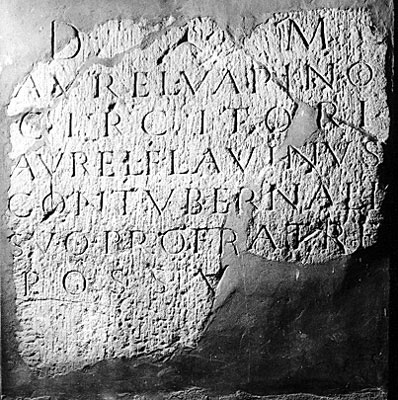 D M
AVREL VAPINO
CIRCITORI
AVREL FLAVINVS
CONTVBERNALI
SVO PRO FRATRE